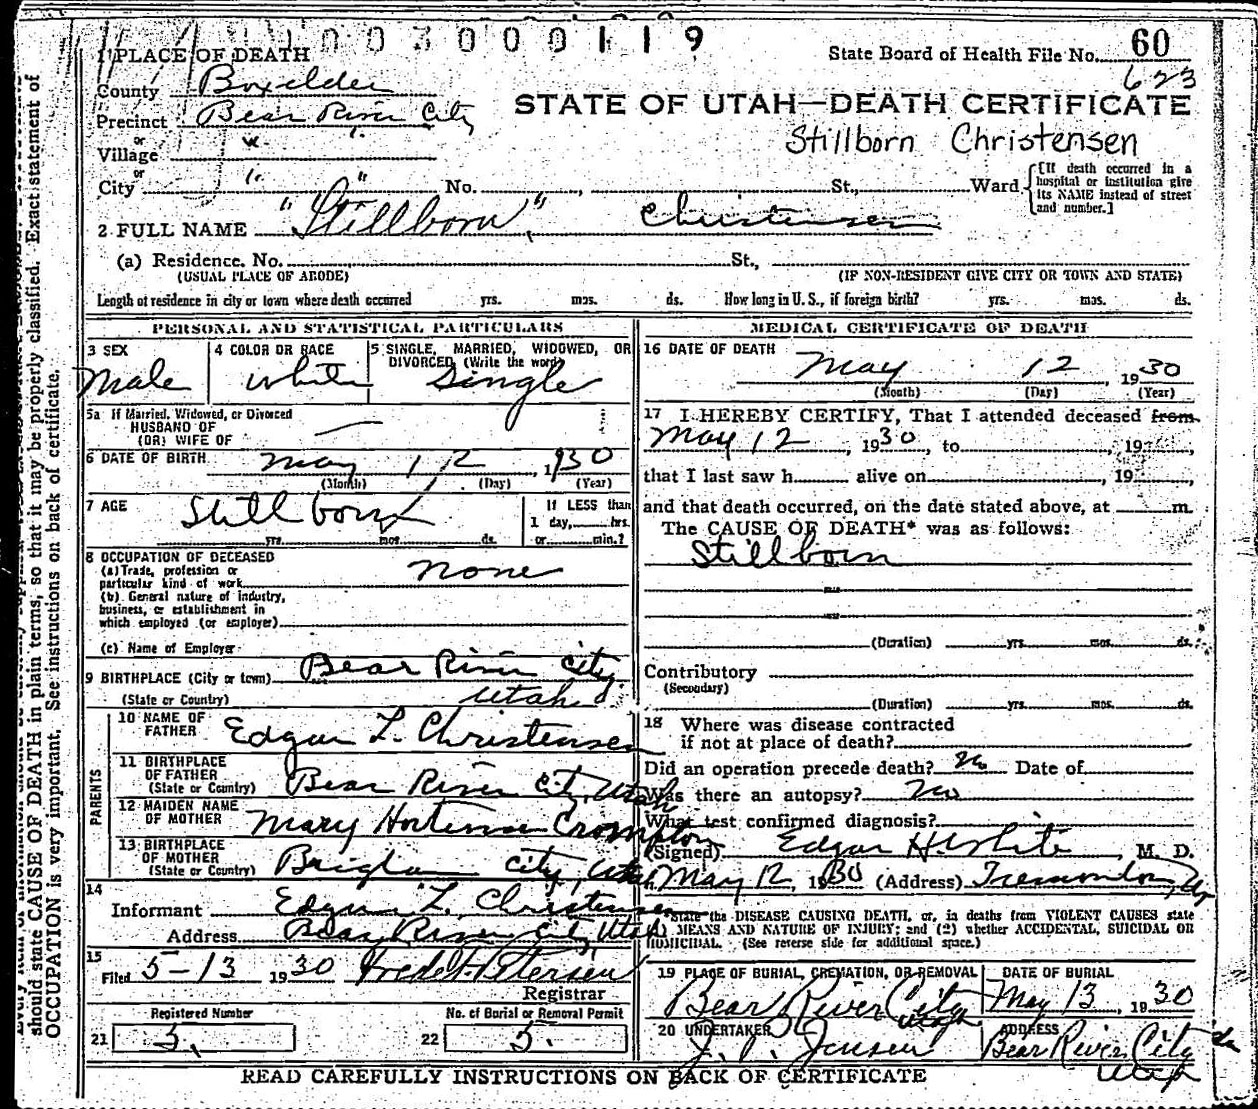 003000119
1 PLACE OF DEATH
State Board of Health File No. 60
623
County Boxelder
STATE OF UTAH—DEATH CERTIFICATE
Precinct Bear River City
or
Village "
Stillborn Christensen
or
City " " No. , St., Ward
[If death occurred in a hospital or institution give its NAME instead of street and number.]
2 FULL NAME "Stillborn" Christensen
(a) Residence. No. St.,
(USUAL PLACE OF ABODE) (IF NON-RESIDENT GIVE CITY OR TOWN AND STATE)
Length of residence in city or town where death occurred yrs. mos. ds. How long in U. S., if foreign birth? yrs. mos. ds.
PERSONAL AND STATISTICAL PARTICULARS
3 SEX
Male
4 COLOR OR RACE
White
5 SINGLE, MARRIED, WIDOWED, OR
DIVORCED (Write the word)
Single
5a If Married, Widowed, or Divorced
HUSBAND OF
(OR) WIFE OF —
6 DATE OF BIRTH May 12, 1930
(Month) (Day) (Year)
7 AGE Stillborn
yrs. mos. ds.
If LESS than
1 day, hrs.
or min.?
8 OCCUPATION OF DECEASED
(a) Trade, profession or
particular kind of work none
(b) General nature of industry,
business, or establishment in
which employed (or employer)
(c) Name of Employer
9 BIRTHPLACE (City or town) Bear River City
(State or Country) Utah
PARENTS
10 NAME OF
FATHER Edgar L. Christensen
11 BIRTHPLACE
OF FATHER
(State or Country) Bear River City, Utah
12 MAIDEN NAME
OF MOTHER Mary Hortense Crompton
13 BIRTHPLACE
OF MOTHER
(State or Country) Brigham City, Utah
14
Informant Edgar L. Christensen
Address Bear River City Utah
15
Filed 5-13 1930 Fred H. Petersen
Registrar
Registered Number
21 3.
No. of Burial or Removal Permit
22 5.
MEDICAL CERTIFICATE OF DEATH
16 DATE OF DEATH
May 12, 1930
(Month) (Day) (Year)
17 I HEREBY CERTIFY, That I attended deceased from
May 12, 1930, to , 19
that I last saw h alive on , 19
and that death occurred, on the date stated above, at m.
The CAUSE OF DEATH* was as follows:
Stillborn
(Duration) yrs. mos. ds.
Contributory
(Secondary)
(Duration) yrs. mos. ds.
18 Where was disease contracted
if not at place of death?
Did an operation precede death? No Date of
Was there an autopsy? No
What test confirmed diagnosis?
(Signed) Edgar H. White, M. D.
May 12, 1930 (Address) Tremonton,
State the DISEASE CAUSING DEATH, or, in deaths from VIOLENT CAUSES state
MEANS AND NATURE OF INJURY; and (2) whether ACCIDENTAL, SUICIDAL OR
HOMICIDAL. (See reverse side for additional space.)
19 PLACE OF BURIAL, CREMATION, OR REMOVAL
Bear River City
Utah
DATE OF BURIAL
May 13, 1930
20 UNDERTAKER
J. P. Jensen
ADDRESS
Bear River City
Utah
READ CAREFULLY INSTRUCTIONS ON BACK OF CERTIFICATE
should state CAUSE OF DEATH in plain terms, so that it may be properly classified. Exact statement of
OCCUPATION is very important. See instructions on back of certificate.